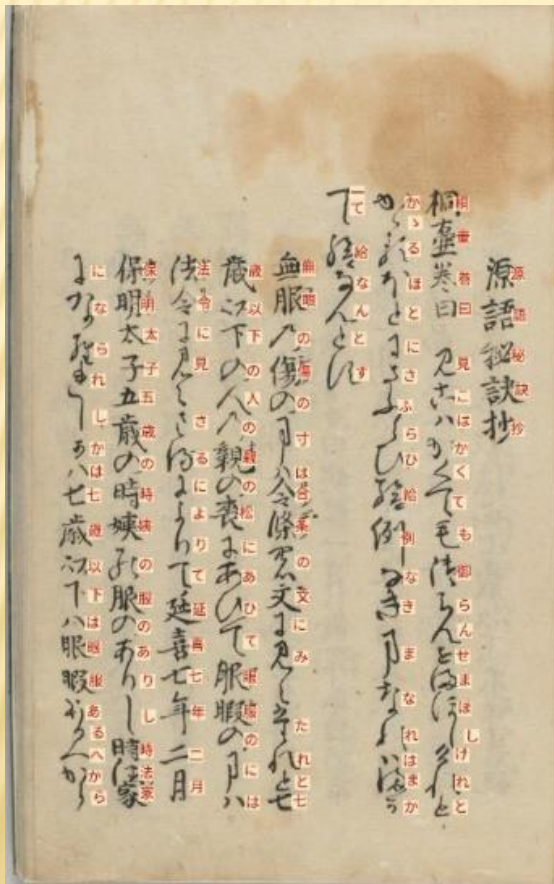 源語秘訣抄
桐壷巻曰 見こはかくても御らんせまほしけれと
かゝるほとにさふらひ給例なきまなれはまか
て給なんとす
無の傷の寸は合条の文にみたれと七
歳以下の人の親の松にあひて服暇のには
法令に見さるによりて延喜七年二月
保明太子五歳の時姨の服のありし時法家
になられしかは七歳以下は服あるへから